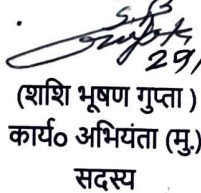 29/
(शशि भूषण गुप्ता )
कार्य० अभियंता (मु.)
सदस्य